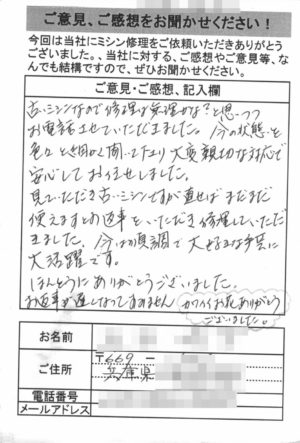 ご意見、ご感想をお聞かせください！
今回は当社にミシン修理をご依頼いただきありがとう
ございました。、当社に対する、ご感想やご意見等、な
んでも結構ですので、ぜひお聞かせください。
ご意見・ご感想、記入欄
古いミシンなので修理は無理かな？と思いつつ
お電話させていただきました。今の状態を
色々と細かく聞いて下さり大変親切な対応で
安心してお任せしました。
見ていただき古いミシンですが直せばまだまだ
使えますとお返事をいただき修理していただ
きました。今は順調で大好きな手芸に
大活躍です。
ほんとうにありがとうございました。
お返事が遅くなってすみません
カワイイお花ありがとう
ございました。
お名前
ご住所
〒669-
兵庫県
電話番号
メールアドレス